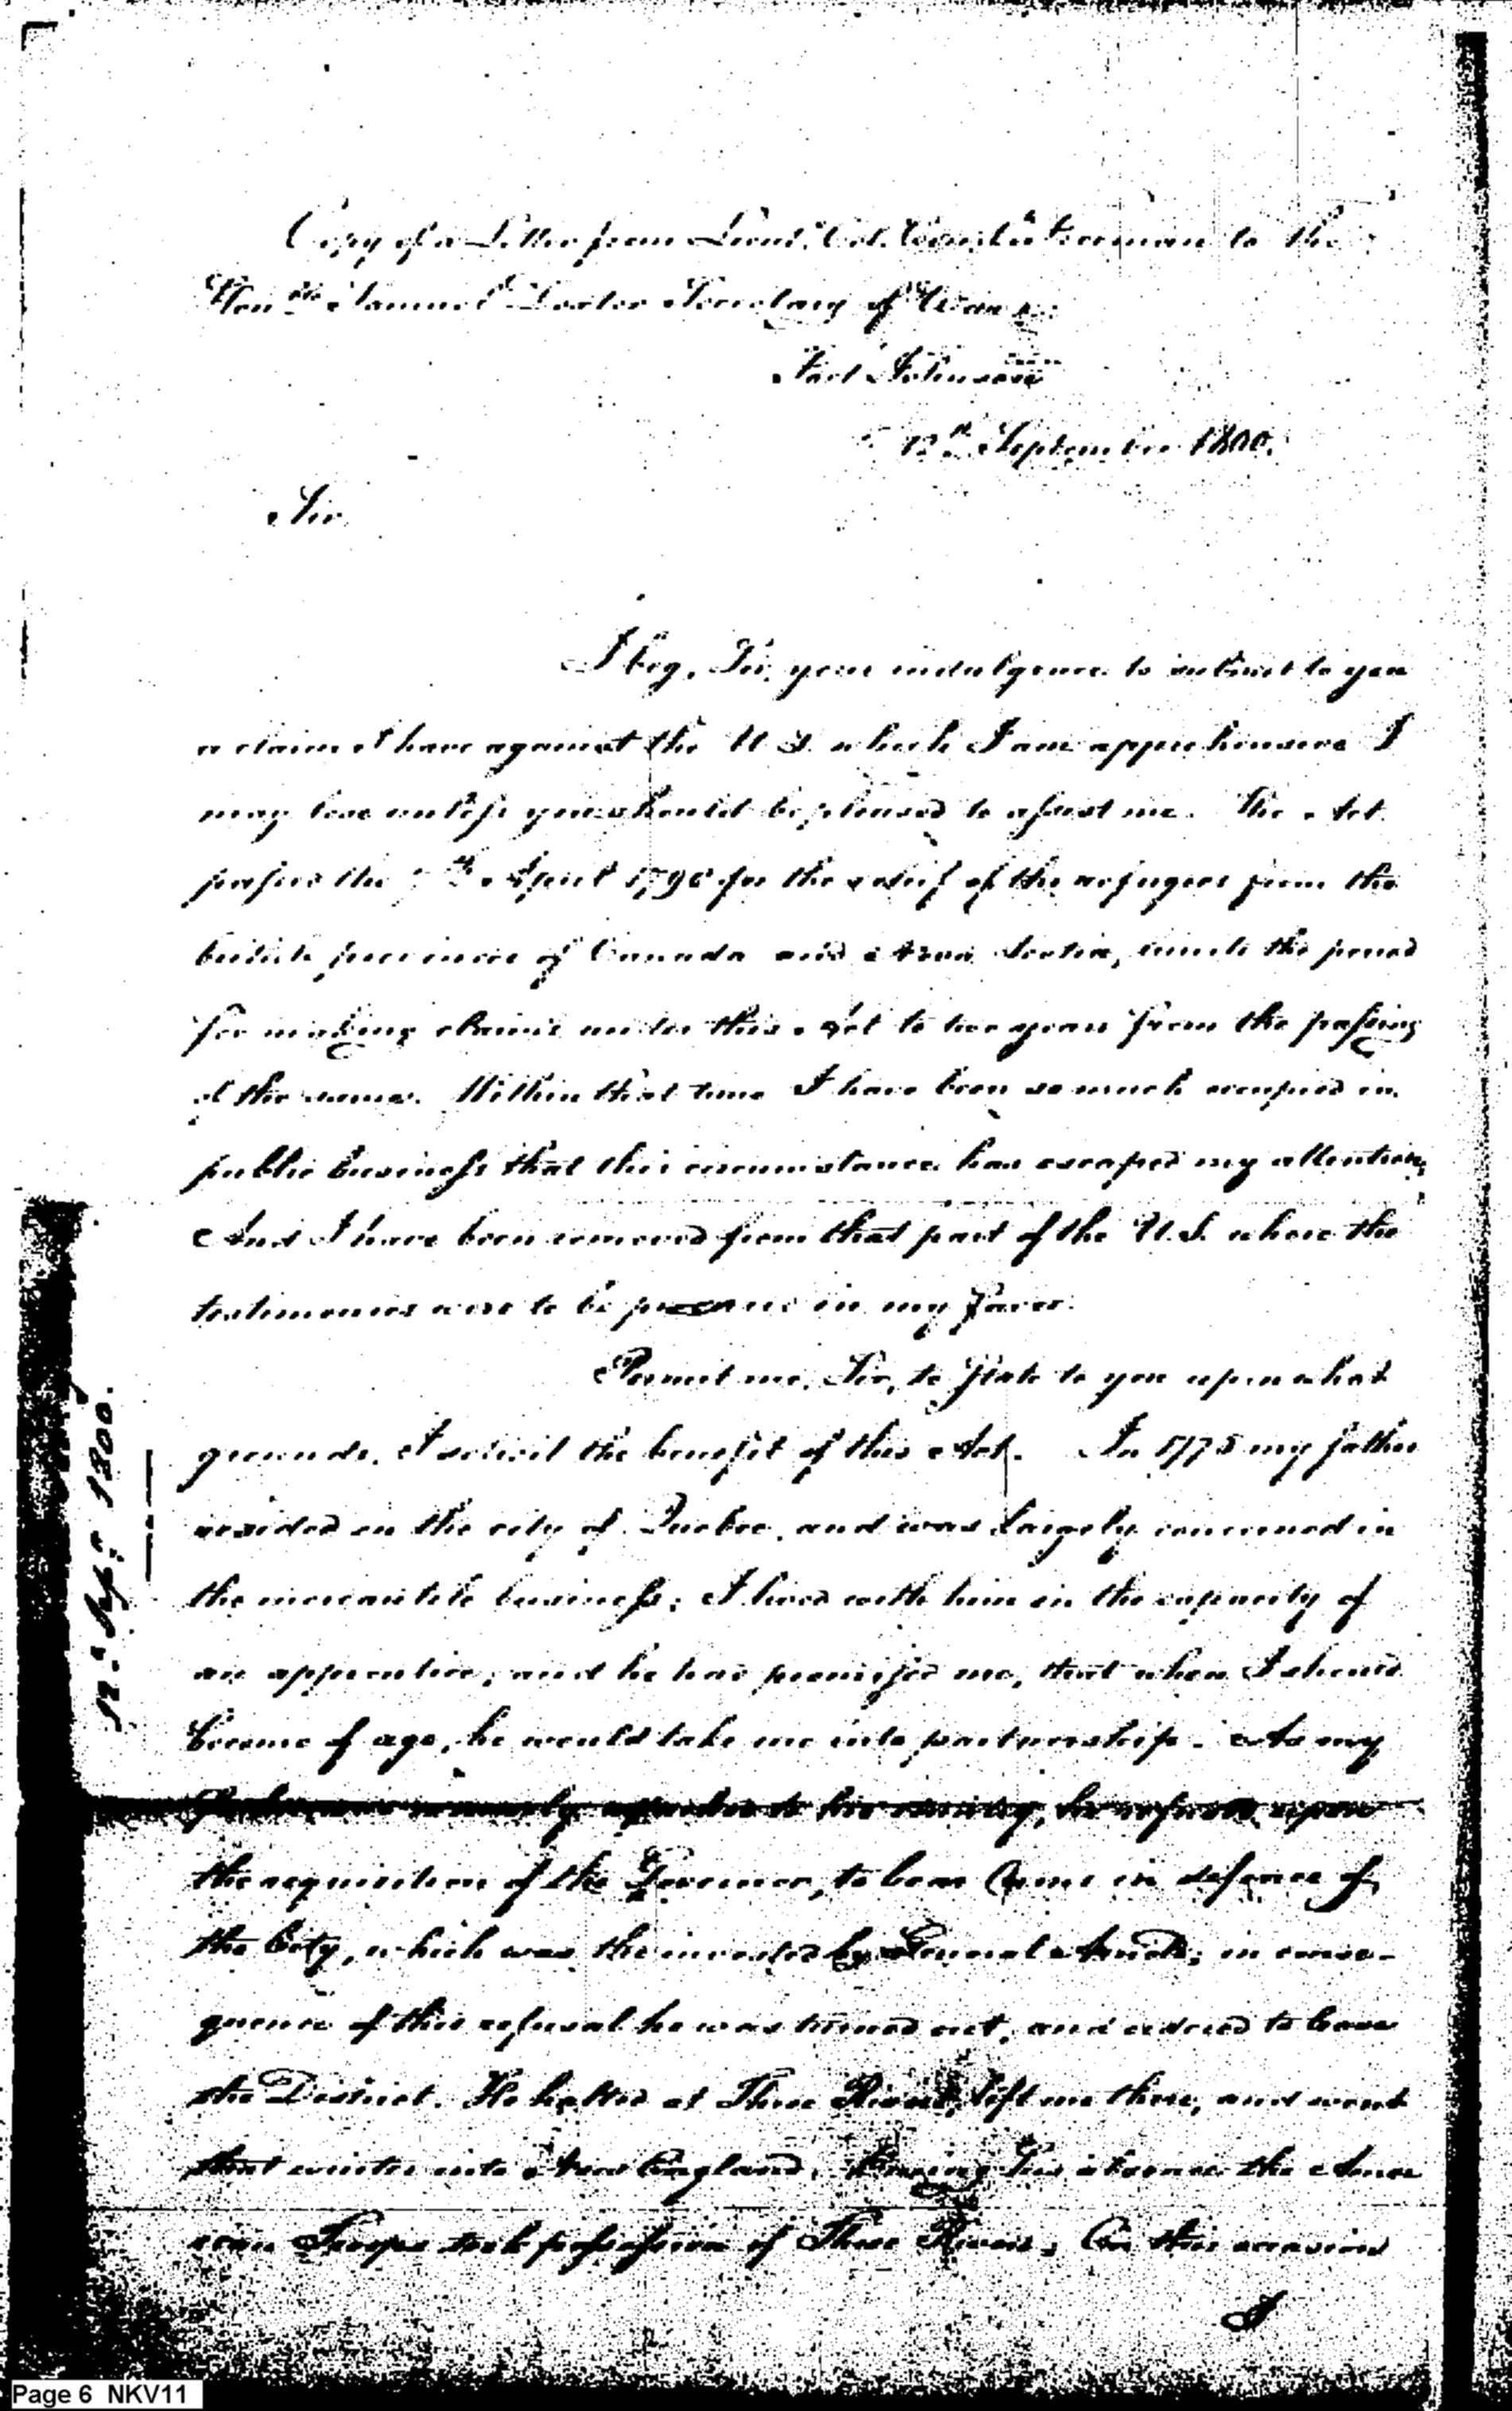 Copy of a Letter from Lieut. Col. Const. Freeman to the
Honble Samuel Dexter Secretary of War
Fort Johnson
12th September 1800.
Sir
I beg, Sir, your indulgence to submit to you
a claim I have against the U S. which I am apprehensive I
may lose unless you should be pleased to assist me. The Act
passed the 7th April 1798 for the relief of the refugees from the
british provinces of Canada and Nova Scotia, limits the period
for making claims under this Act to two years from the passing
of the same. Within that time I have been so much occupied in
public business that this circumstance has escaped my attention,
And I have been removed from that part of the U.S. where the
testimonies were to be procured in my favor.
Permit me, Sir, to State to you upon what
grounds, I solicit the benefit of this Act. In 1775 my father
resided in the city of Quebec, and was largely concerned in
the mercantile business; I lived with him in the capacity of
an apprentice; and he has promised me, that when I should
become of age, he would take me into partnership. As my
father was warmly attached to his country, he refused upon
the requisition of the Governor, to bear Arms in defence of
the City, which was the invested by General Arnold; in conse-
quence of this refusal he was turned out, and ordered to leave
the District. He halted at Three Rivers, left me there, and went
that winter into New England. During his absence the Amer
ican Troops took possession of Three Rivers, On this occasion
I
12th Sepr. 1800.
Page 6 NKV11